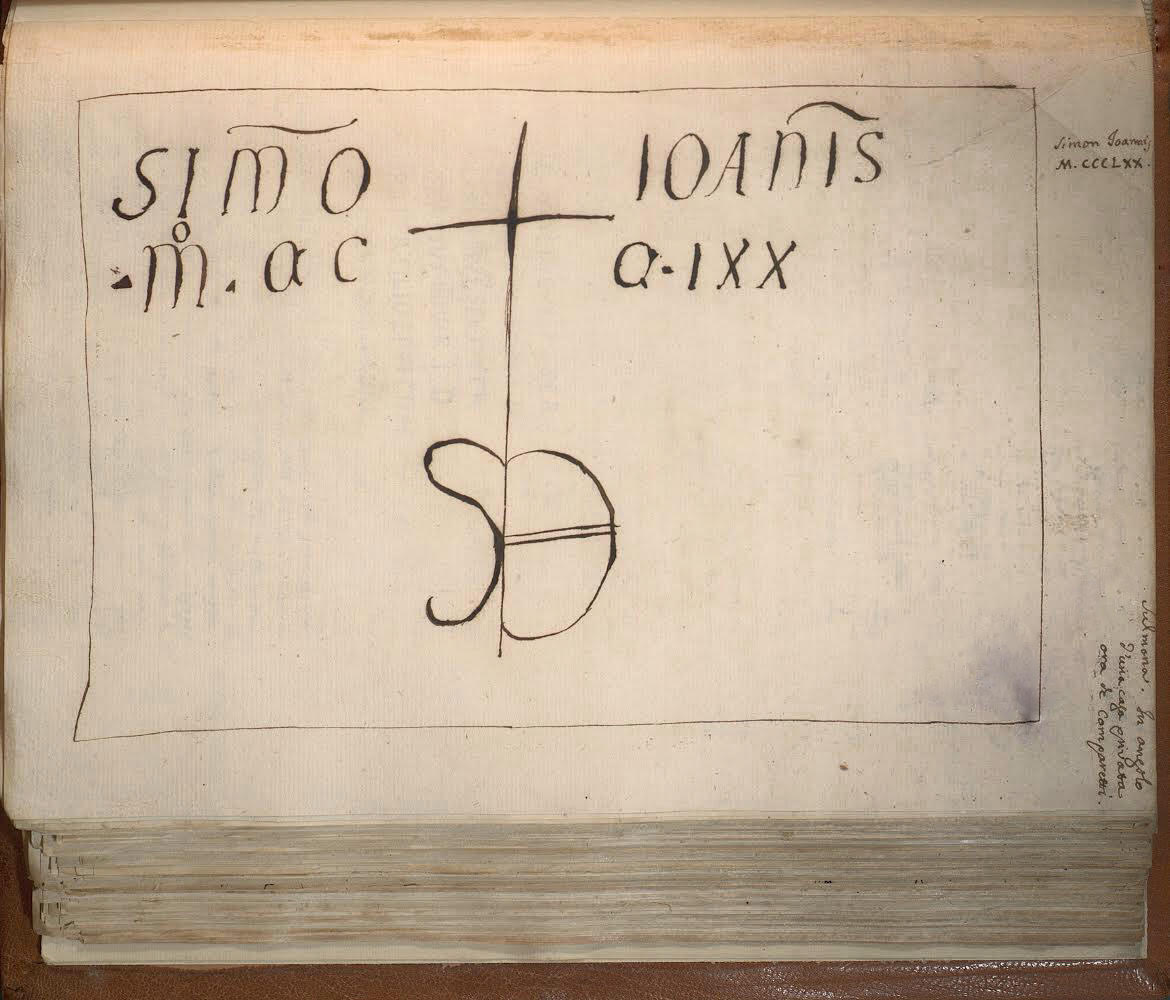 SIM̅O IOAN̅IS
·M̊·ac a·IXX
Simon Joannis
M.CCCLXX.
Sulmona. In angolo
d'una casa privata
ora de Comparetti.